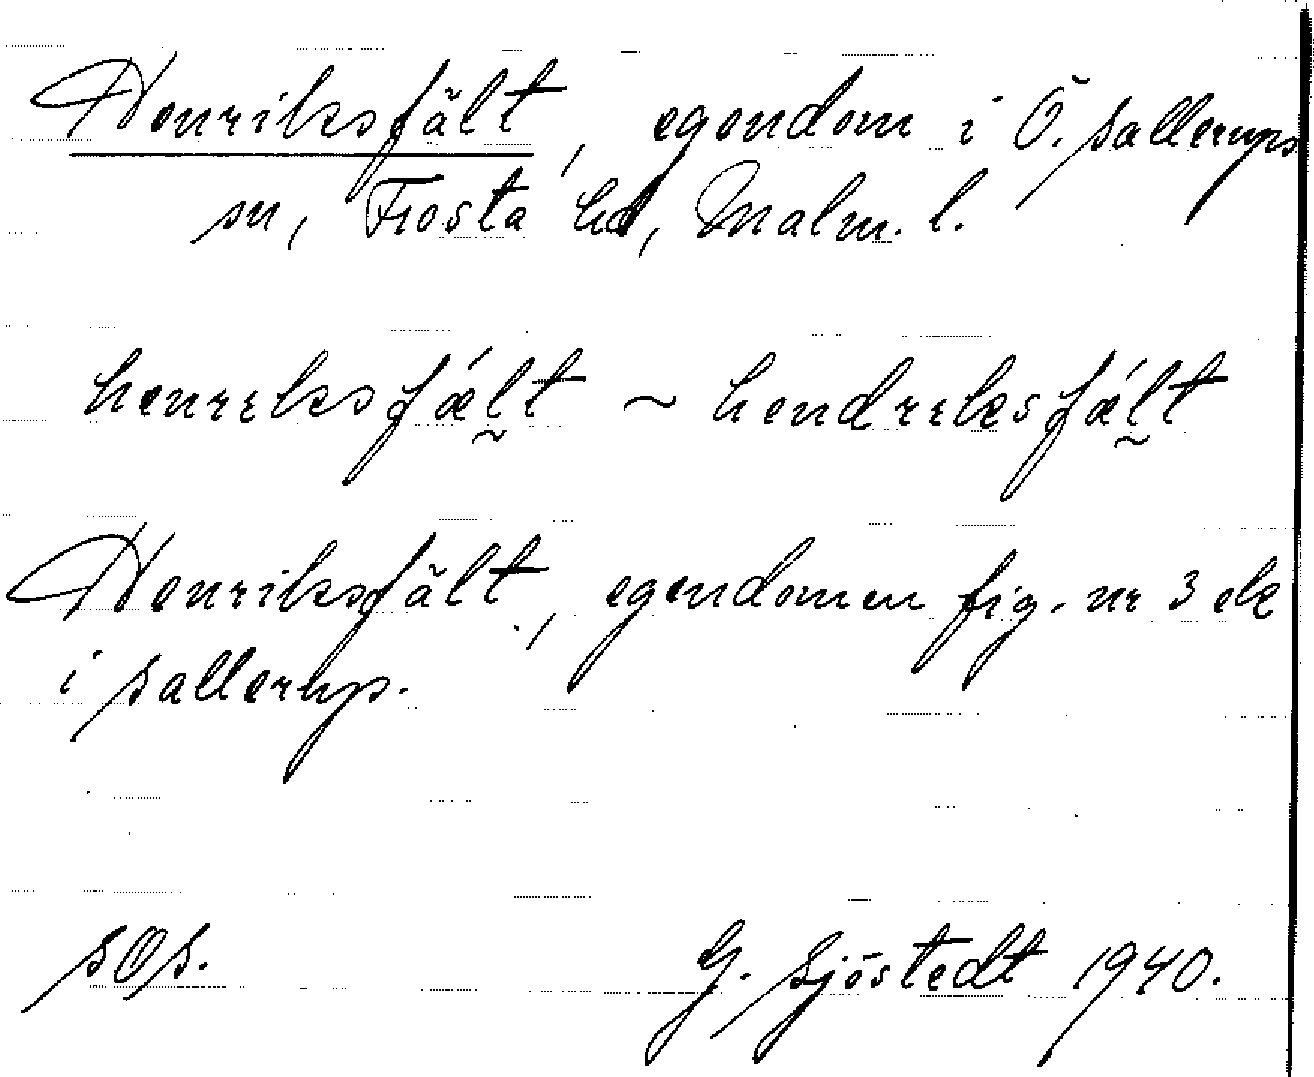 Henriksfält, egendom i Ö. Sallerups
sn, Frosta hd, Malm. l.
henriksfǽlt ~ hendriksfǽlt
Henriksfält, egendomen fig. nr 3 ek
i Sallerup.
SOS.
G. Sjöstedt 1940.